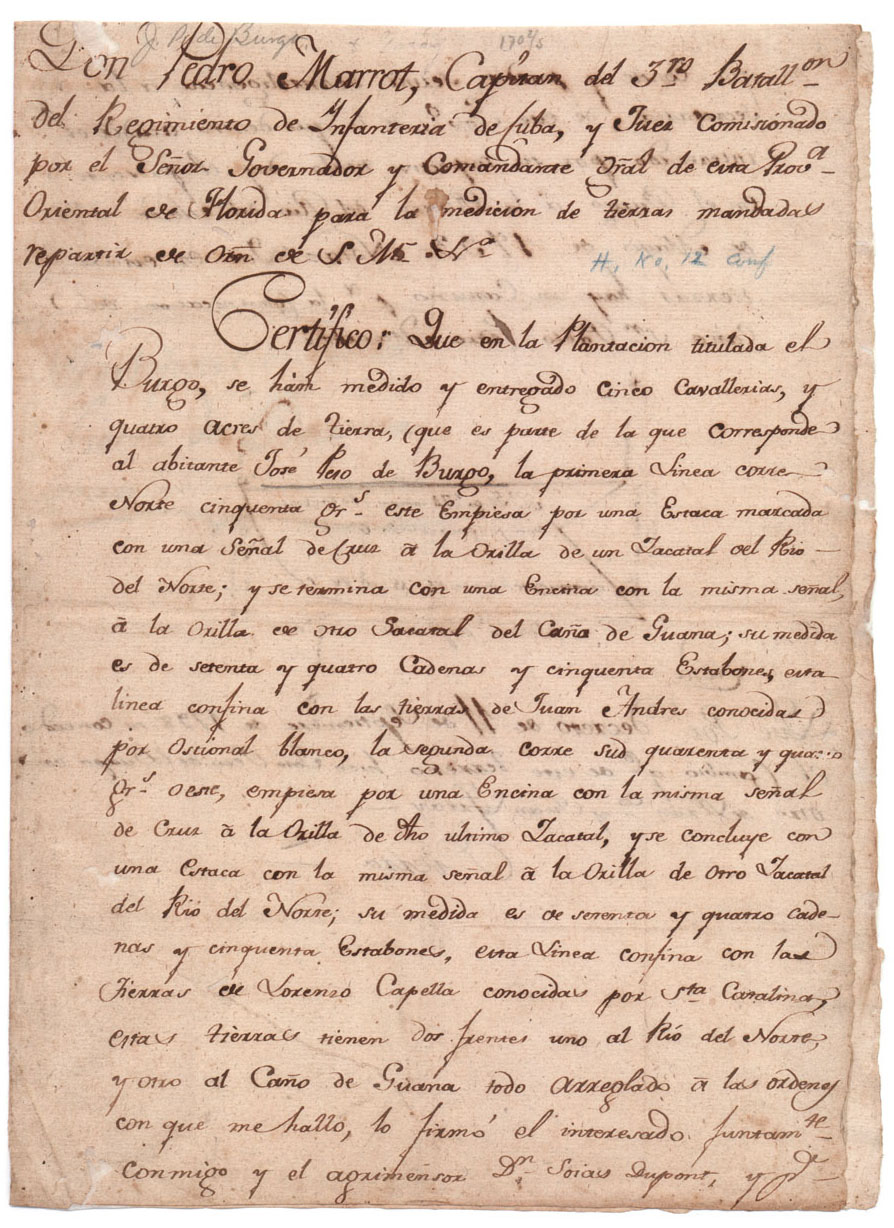 J. Po de Burgo 1704/5
Don Pedro Marrot, Capitan del 3ro Batallon
del Regimiento de Infanteria de Cuba, y Juez Comisionado
por el Señor Governador y Comandante Gñal de esta Prova
Oriental de Florida para la medicion de tierras mandadas
repartir de Orn de S. M. &c
H, No, 12 Conf
Certifico: Que en la Plantacion titulada el
Burgo, se hám medido y entregado cinco Cavallerias, y
quatro acres de tierra, (que es parte de la que corresponde
al abitante José Peso de Burgo, la primera Linea corre
Norte cinquenta grs este Empiesa por una Estaca marcada
con una Señal de Cruz â la Orilla de un Zacatal del Rio
del Norte; y se termina con una Encina con la misma señal,
â la Orilla de otro Sacatal del Caño de Guana; su medida
es de setenta y quatro Cadenas y cinquenta Estabones, esta
linea confina con las tierras de Juan Andres conocidas
por Ostional blanco, la segunda corre sud quarenta y quatro
grs Oeste, empiesa por una Encina con la misma señal
de Cruz â la Orilla de dho ultimo Zacatal, y se concluye con
una Estaca con la misma señal â la Orilla de Otro Zacatal
del Rio del Norte; su medida es de setenta y quatro cade-
nas y cinquenta Estabones, esta Linea confina con las
Tierras de Lorenzo Capella conocidas por Sta Catalina,
estas tierras tienen dos frentes uno al Rio del Norte,
y otro al Caño de Guana todo arreglado â las ordenes
con que me hallo, lo firmó el interesado juntamte
conmigo y el agrimensor Dn Soias Dupont, y pa